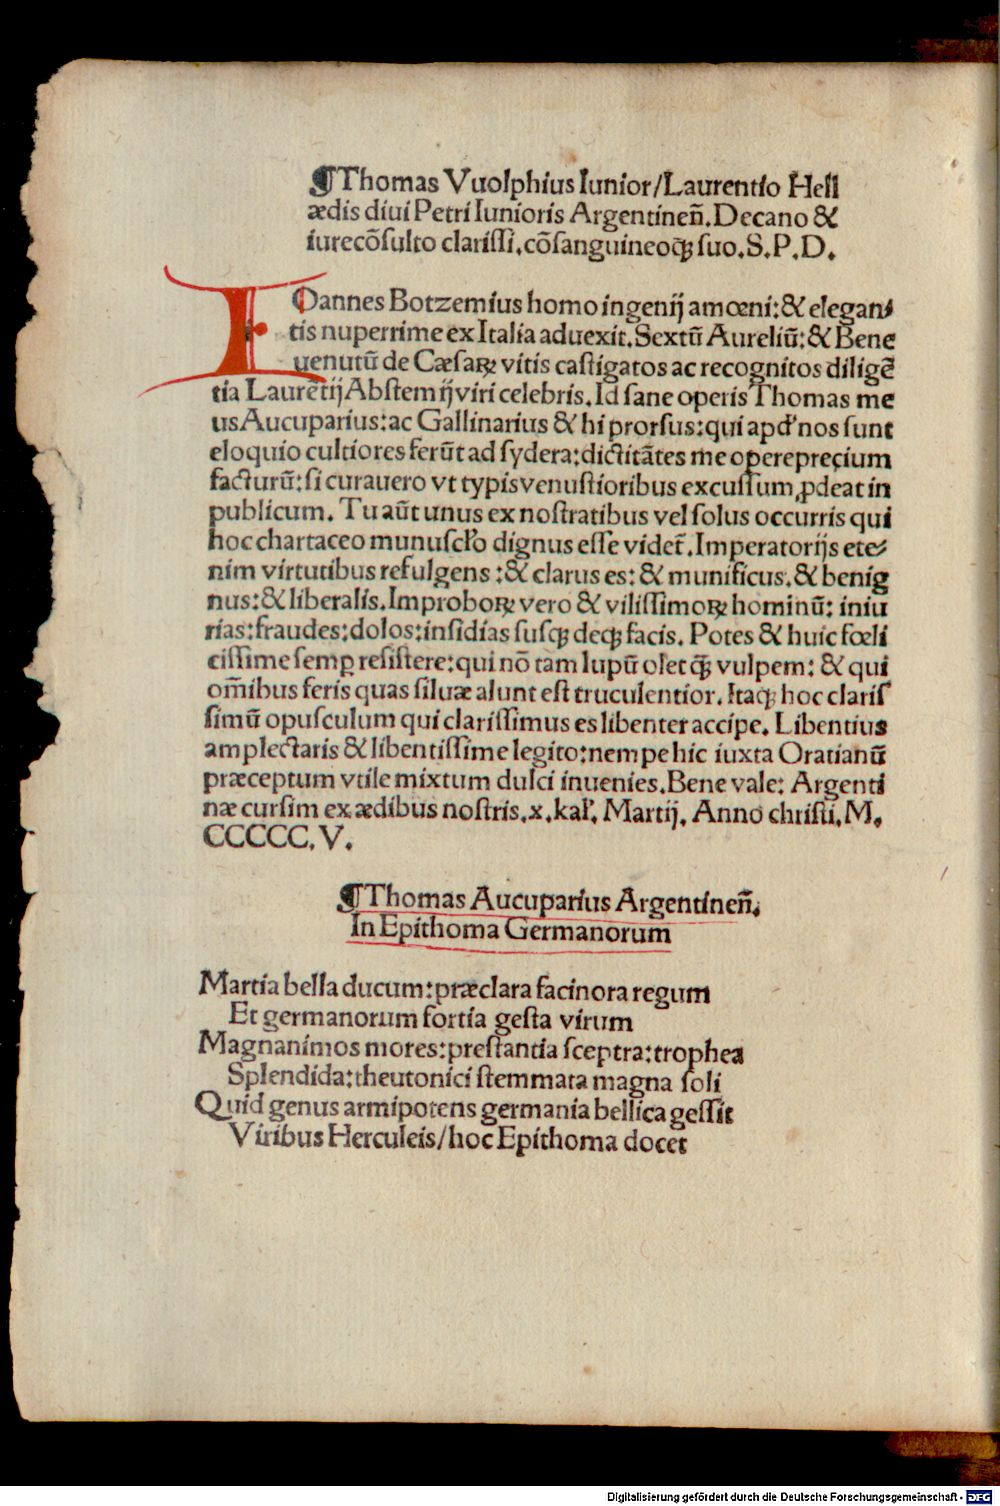 ¶Thomas Vuolphius Iunior/Laurentio Hell
ædis diui Petri Iunioris Argentineñ.Decano &
iurecõsulto clariſſi.cõsanguineoqꝫ ſuo.S.P.D.
IOannes Botzemius homo ingenij amœni:& elegan⸗
tis nuperrime ex Italia aduexit.Sextũ Aureliũ:& Bene
uenutũ de Cæsaꝝ vitis caſtigatos ac recognitos diligẽ
tia Laurẽtij Abſtemij viri celebris.Id ſane operis Thomas me
us Aucuparius:ac Gallinarius & hi prorſus:qui apđ nos ſunt
eloquio cultiores ferũt ad ſydera:dictitãtes me operepreçium
facturũ:ſi curauero vt typis venuſtioribus excuſſum ꝓdeat in
publicum. Tu aũt unus ex noſtratibus vel ſolus occurris qui
hoc chartaceo munuſcło dignus eſſe videt̃.Imperatorijs ete⸗
nim virtutibus refulgens :& clarus es: & munificus.& benig
nus:& liberalis.Improboꝝ vero & viliſſimoꝝ hominũ: iniu
rias:fraudes:dolos:inſidias ſuſqꝫ deqꝫ facis. Potes & huic fœli
ciſſime ſemꝑ reſiſtere:qui nõ tam lupũ olet qꝫ̃ vulpem: & qui
om̃ibus feris quas ſiluæ alunt eſt truculentior. Itaqꝫ hoc clariſ
ſimũ opuſculum qui clariſſimus es libenter accipe. Libentius
amplectaris & libentiſſime legito:nempe hic iuxta Oratianũ
præceptum vtile mixtum dulci inuenies.Bene vale: Argenti
næ curſim ex ædibus noſtris.x.kał. Martij. Anno chriſti.M.
CCCCC.V.
¶Thomas Aucuparius Argentineñ.
In Epithoma Germanorum
Martia bella ducum:præclara facinora regum
Et germanorum fortia geſta virum
Magnanimos mores:preſtantia ſceptra:trophea
Splendida:theutonici ſtemmata magna ſoli
Quid genus armipotens germania bellica geſſit
Viribus Herculeis/hoc Epithoma docet
Digitalisierung gefördert durch die Deutsche Forschungsgemeinschaft - DFG